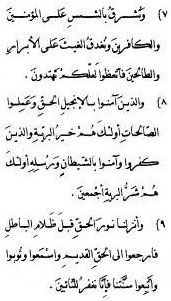 ٧) ونشرق بالشمس على المؤمنين
والكافرين ونغدق الغيث على الأبرار
والطالحين فاتعظوا لعلكم تهتدون.
٨) والذين آمنوا بالإنجيل الحق وعملوا
الصالحات أولئك هم خير البرية والذين
كفروا وآمنوا بالشيطان ورسله أولئك
هم شر البرية أجمعين.
٩) وأنزلنا نور الحق قبل ظلام الباطل
فارجعوا الى الحق القديم واسمعوا وتوبوا
واتبعوا سنتنا فإنا نغفر للتائبين.